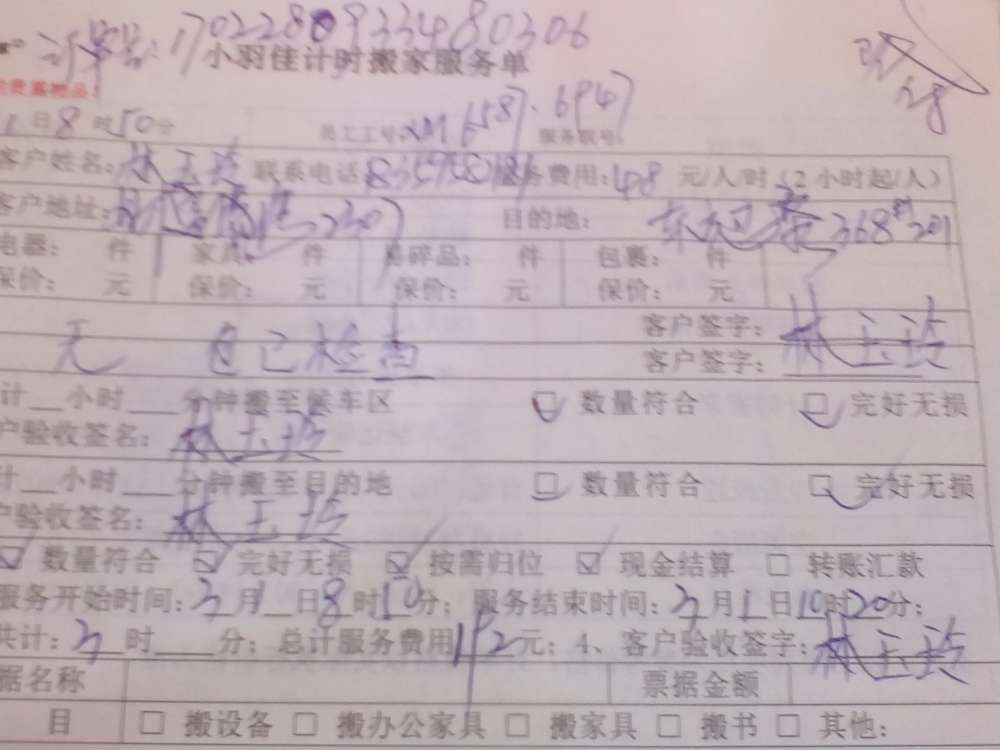 订单号: 170228093348030​6
小羽佳计时搬家服务单
28
1日8时50分 员工工号XM6587.6947 服务联号:
客户姓名:林玉玲 联系电话 务费用:48元/人/时(2小时起/人)
客户地址: 2307 目的地: 368#201
电器: 件 家具: 件 易碎品: 件 包裹: 件
保价: 元 保价: 元 保价: 元 保价: 元
客户签字:林玉玲
无 自己检查 客户签字:
计__小时___分钟搬至候车区 □数量符合 □完好无损
户验收签名:林玉玲
计__小时___分钟搬至目的地 □数量符合 □完好无损
户验收签名:林玉玲
☑数量符合 ☑完好无损 ☑按需归位 ☑现金结算 □转账汇款
服务开始时间:3月1日8时10分; 服务结束时间:3月1日10时20分;
共计:3时____分; 总计服务费用192元; 4、客户验收签字:林玉玲
据名称 票据金额
目 □搬设备 □搬办公家具 □搬家具 □搬书 □其他: